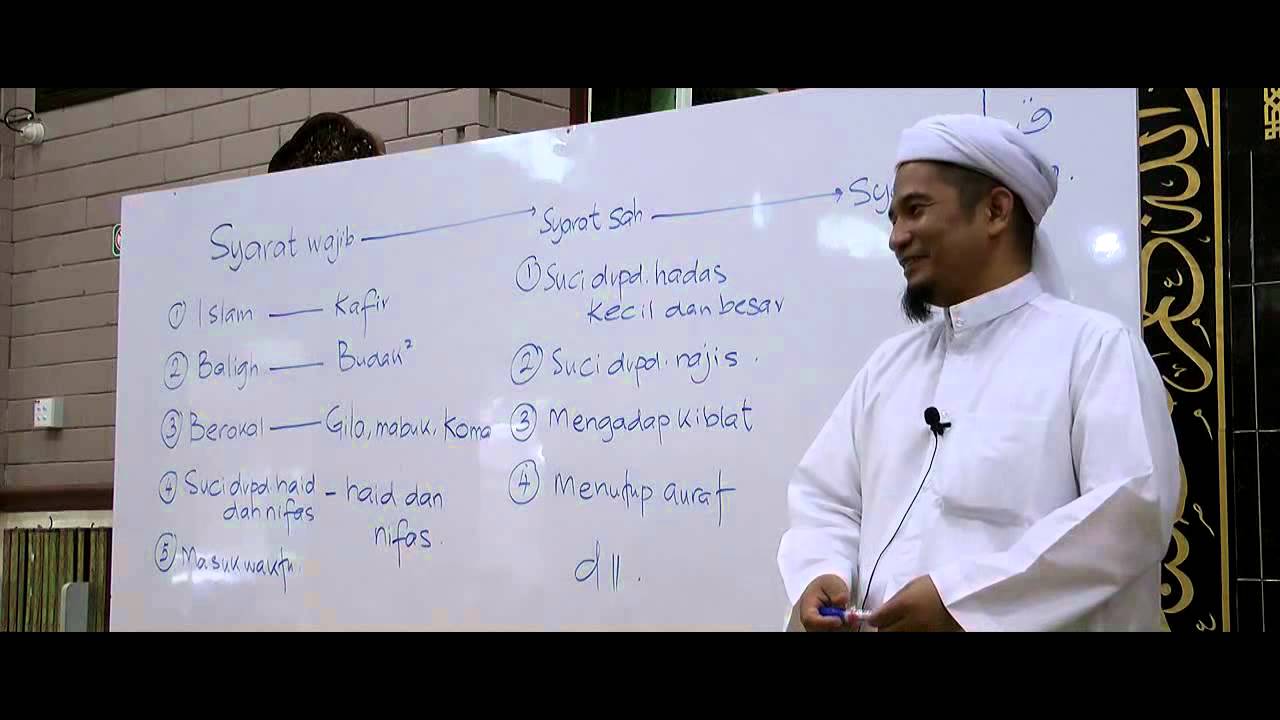 Syarat wajib
① Islam — Kafir
② Baligh — Budak²
③ Berakal — Gilo, mabuk, koma
④ Suci drpd. haid — haid dan
dan nifas nifas.
⑤ Masuk waktu.
Syarat sah
① Suci drpd. hadas
kecil dan besar
② Suci drpd. najis.
③ Mengadap kiblat
④ Menutup aurat
dll.